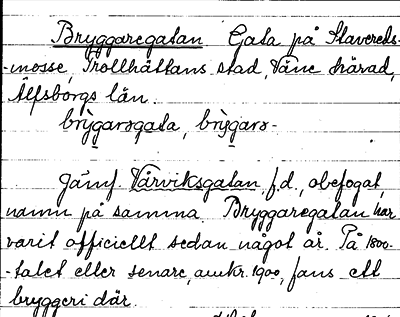 Bryggaregatan Gata på Stavereds-
-mosse, Trollhättans stad, Väne härad,
Älfsborgs län.
brỳgarəgata, brỳgarə-
Jämf. Vårviksgatan, f.d., obefogat,
namn på samma. Bryggaregatan har
varit officiellt sedan något år. På 1800-
-talet eller senare, omkr. 1900, fans ett
bryggeri där.